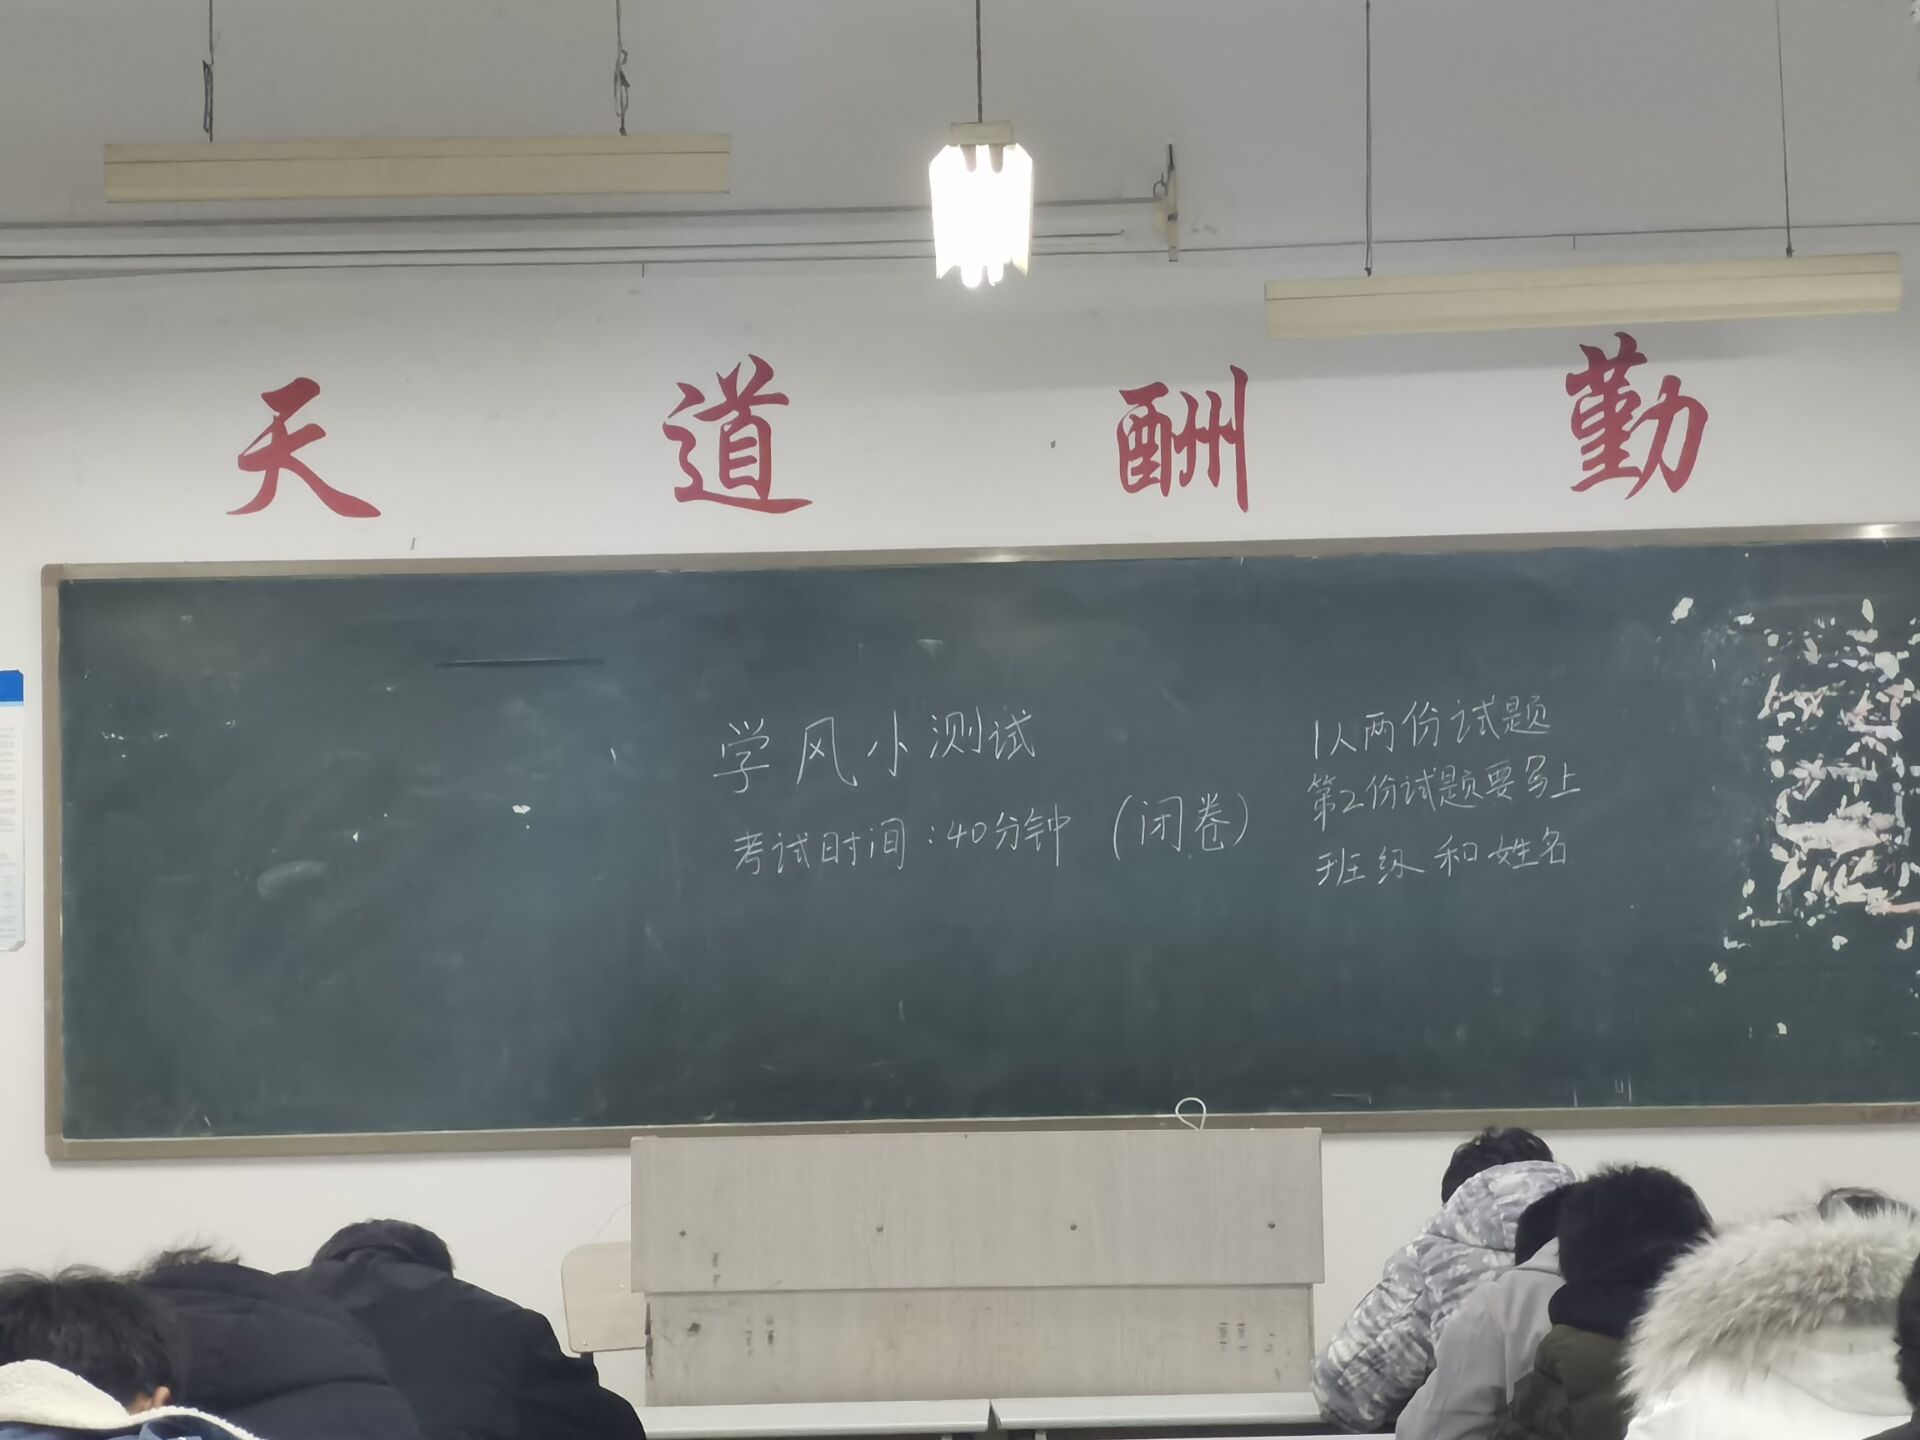 天道酬勤
学风小测试
考试时间:40分钟 (闭卷)
1人两份试题
第2份试题要写上
班级和姓名